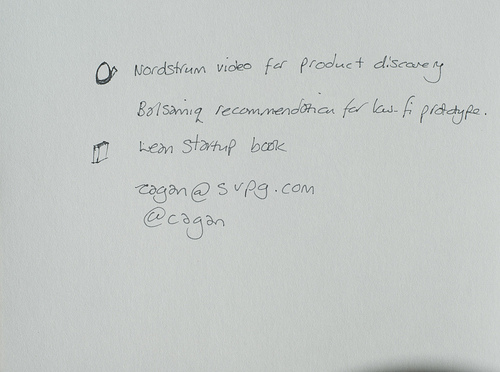 Nordstrum video for product discovery
Balsamiq recommendation for low-fi prototype.
Lean Startup book
cagan@svpg.com
@cagan